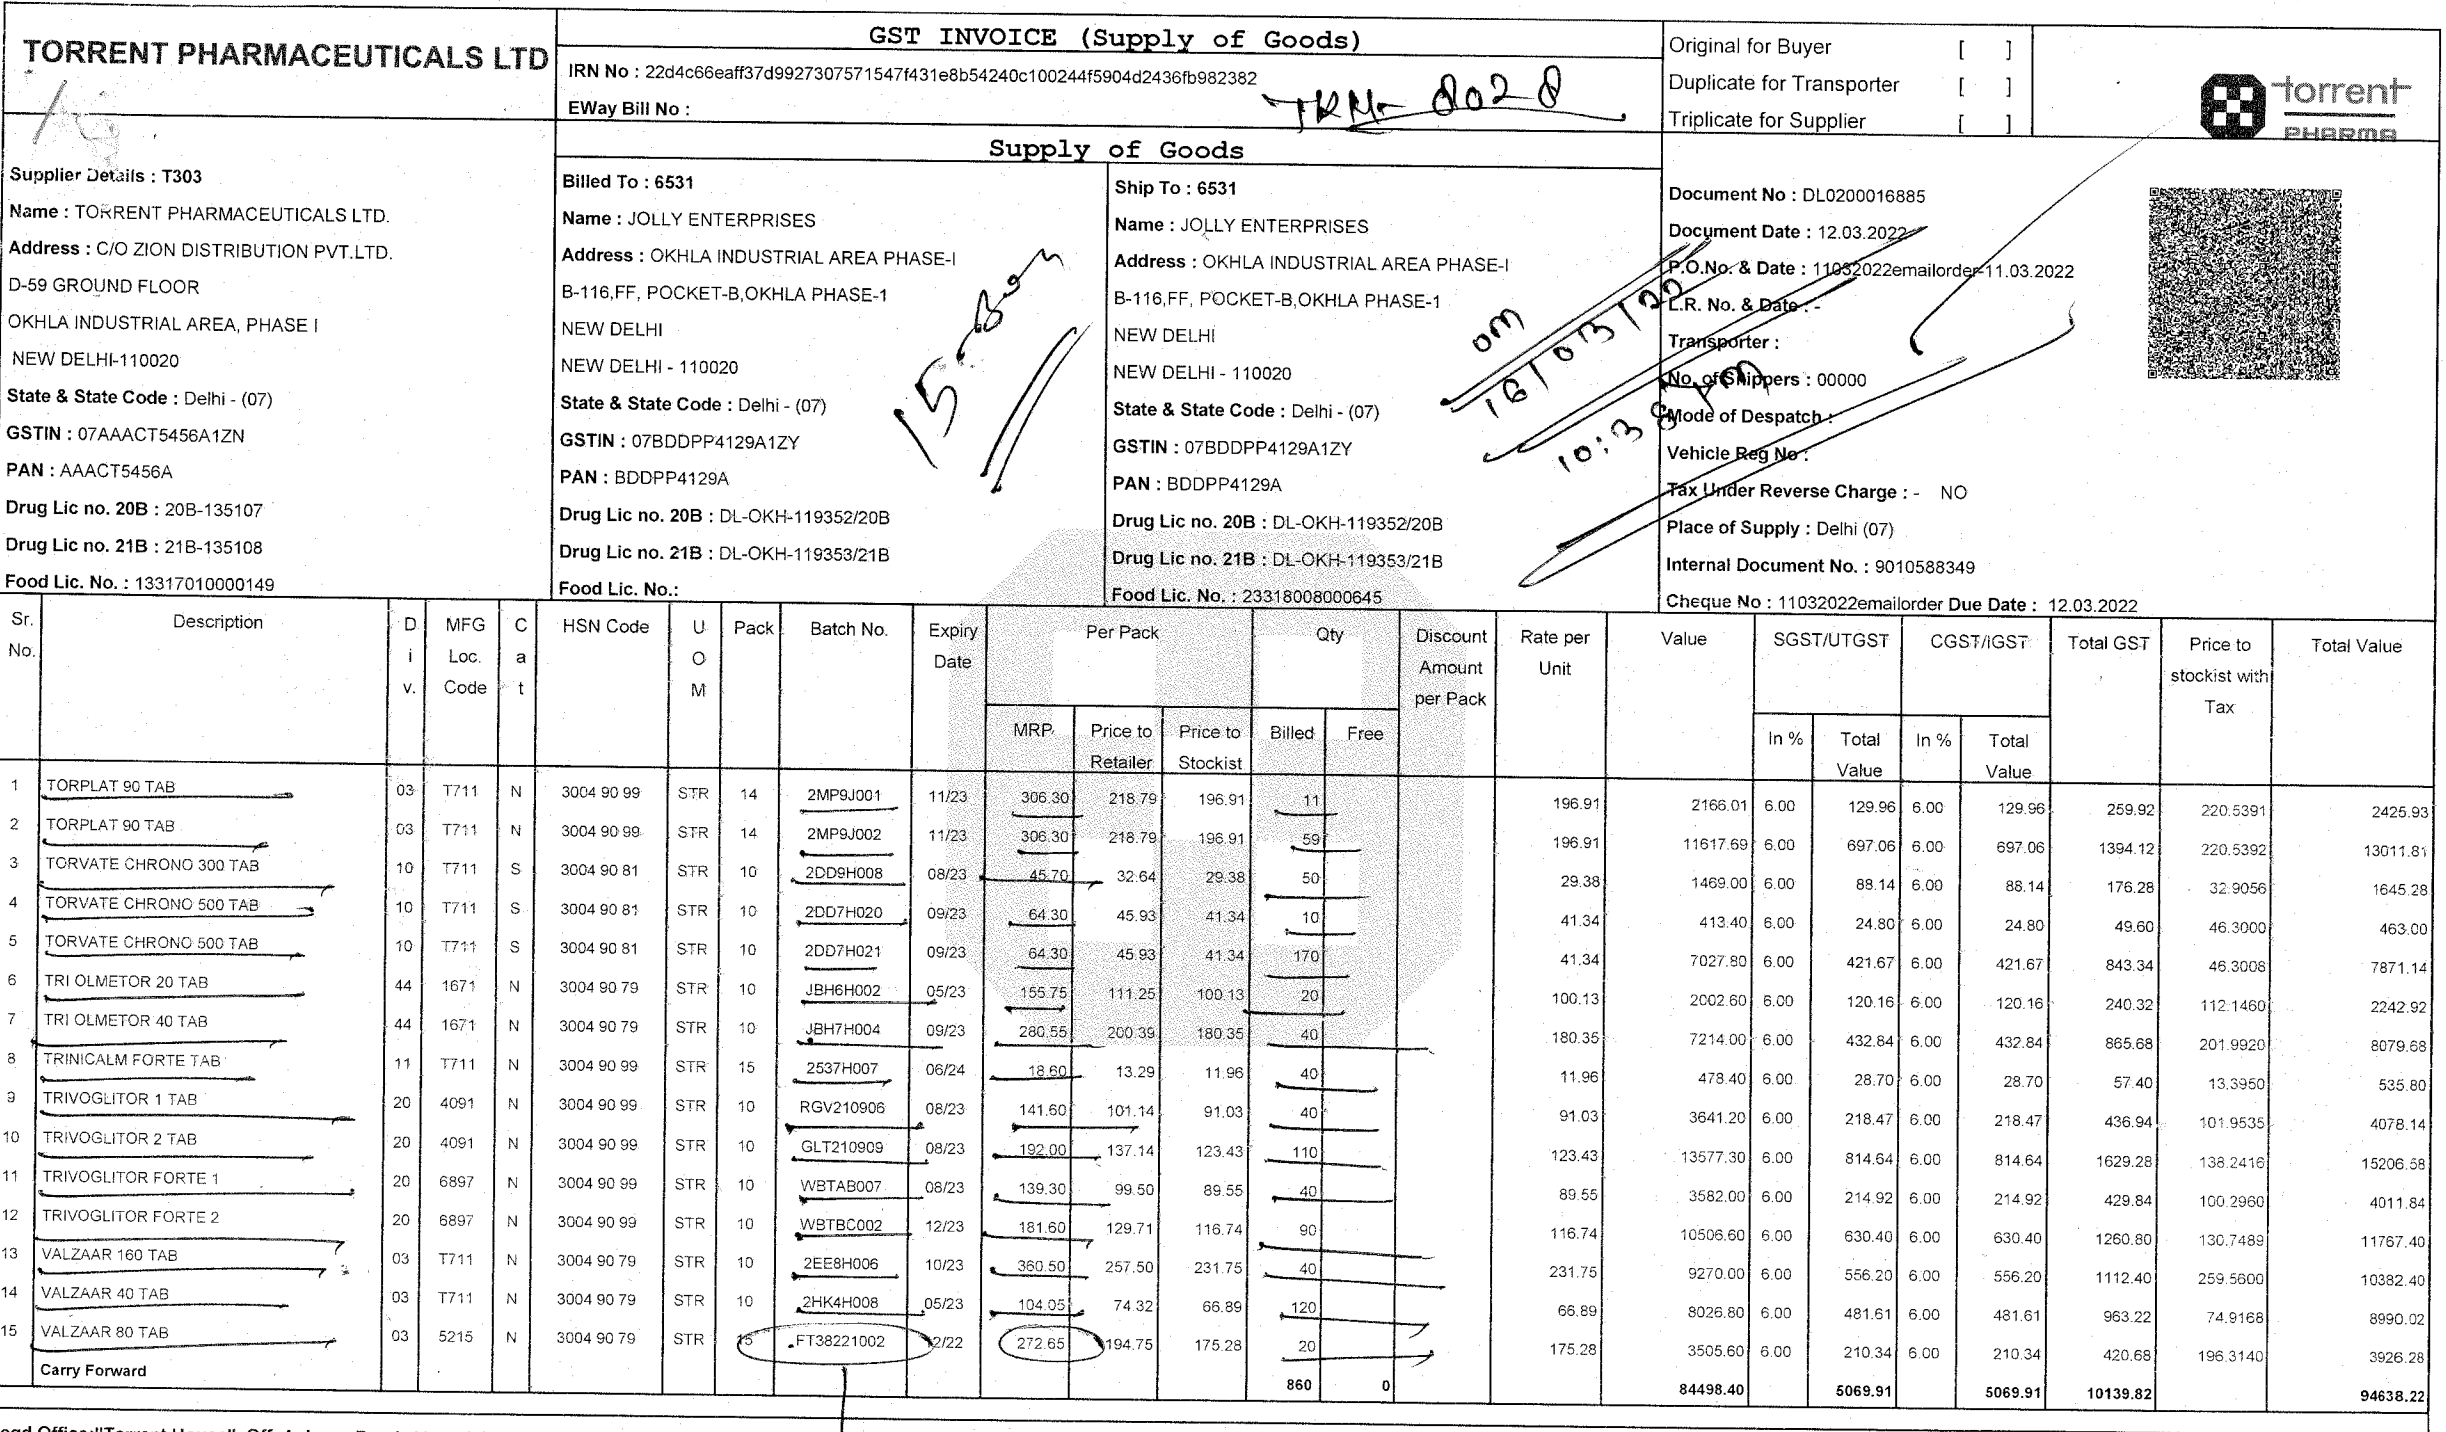 TORRENT PHARMACEUTICALS LTD
GST INVOICE (Supply of Goods)
IRN No : 22d4c66eaff37d9927307571547f431e8b54240c100244f5904d2436fb982382
EWay Bill No :
TRM- 8028
Original for Buyer [ ]
Duplicate for Transporter [ ]
Triplicate for Supplier [ ]
torrent
PHARMA
Supply of Goods
Supplier Details : T303
Name : TORRENT PHARMACEUTICALS LTD.
Address : C/O ZION DISTRIBUTION PVT.LTD.
D-59 GROUND FLOOR
OKHLA INDUSTRIAL AREA, PHASE I
NEW DELHI-110020
State & State Code : Delhi - (07)
GSTIN : 07AAACT5456A1ZN
PAN : AAACT5456A
Drug Lic no. 20B : 20B-135107
Drug Lic no. 21B : 21B-135108
Food Lic. No. : 13317010000149
Billed To : 6531
Name : JOLLY ENTERPRISES
Address : OKHLA INDUSTRIAL AREA PHASE-I
B-116,FF, POCKET-B,OKHLA PHASE-1
NEW DELHI
NEW DELHI - 110020
State & State Code : Delhi - (07)
GSTIN : 07BDDPP4129A1ZY
PAN : BDDPP4129A
Drug Lic no. 20B : DL-OKH-119352/20B
Drug Lic no. 21B : DL-OKH-119353/21B
Food Lic. No.:
Ship To : 6531
Name : JOLLY ENTERPRISES
Address : OKHLA INDUSTRIAL AREA PHASE-I
B-116,FF, POCKET-B,OKHLA PHASE-1
NEW DELHI
NEW DELHI - 110020
State & State Code : Delhi - (07)
GSTIN : 07BDDPP4129A1ZY
PAN : BDDPP4129A
Drug Lic no. 20B : DL-OKH-119352/20B
Drug Lic no. 21B : DL-OKH-119353/21B
Food Lic. No. : 23318008000645
Document No : DL0200016885
Document Date : 12.03.2022
P.O.No. & Date : 11032022emailorder-11.03.2022
L.R. No. & Date : -
Transporter :
No. of Shippers : 00000
Mode of Despatch :
Vehicle Reg No :
Tax Under Reverse Charge : - NO
Place of Supply : Delhi (07)
Internal Document No. : 9010588349
Cheque No : 11032022emailorder Due Date : 12.03.2022
15
om
16/03/22
10:38 AM
Sr. No. Description Div. MFG Loc. Code Cat HSN Code UOM Pack Batch No. Expiry Date Per Pack Qty Discount Amount per Pack Rate per Unit Value SGST/UTGST CGST/IGST Total GST Price to stockist with Tax Total Value
MRP Price to Retailer Price to Stockist Billed Free In % Total Value In % Total Value
1 TORPLAT 90 TAB 03 T711 N 3004 90 99 STR 14 2MP9J001 11/23 306.30 218.79 196.91 11 196.91 2166.01 6.00 129.96 6.00 129.96 259.92 220.5391 2425.93
2 TORPLAT 90 TAB 03 T711 N 3004 90 99 STR 14 2MP9J002 11/23 306.30 218.79 196.91 59 196.91 11617.69 6.00 697.06 6.00 697.06 1394.12 220.5392 13011.81
3 TORVATE CHRONO 300 TAB 10 T711 S 3004 90 81 STR 10 2DD9H008 08/23 45.70 32.64 29.38 50 29.38 1469.00 6.00 88.14 6.00 88.14 176.28 32.9056 1645.28
4 TORVATE CHRONO 500 TAB 10 T711 S 3004 90 81 STR 10 2DD7H020 09/23 64.30 45.93 41.34 10 41.34 413.40 6.00 24.80 6.00 24.80 49.60 46.3000 463.00
5 TORVATE CHRONO 500 TAB 10 T711 S 3004 90 81 STR 10 2DD7H021 09/23 64.30 45.93 41.34 170 41.34 7027.80 6.00 421.67 6.00 421.67 843.34 46.3008 7871.14
6 TRI OLMETOR 20 TAB 44 1671 N 3004 90 79 STR 10 JBH6H002 05/23 155.75 111.25 100.13 20 100.13 2002.60 6.00 120.16 6.00 120.16 240.32 112.1460 2242.92
7 TRI OLMETOR 40 TAB 44 1671 N 3004 90 79 STR 10 JBH7H004 09/23 280.55 200.39 180.35 40 180.35 7214.00 6.00 432.84 6.00 432.84 865.68 201.9920 8079.68
8 TRINICALM FORTE TAB 11 T711 N 3004 90 99 STR 15 2537H007 06/24 18.60 13.29 11.96 40 11.96 478.40 6.00 28.70 6.00 28.70 57.40 13.3950 535.80
9 TRIVOGLITOR 1 TAB 20 4091 N 3004 90 99 STR 10 RGV210906 08/23 141.60 101.14 91.03 40 91.03 3641.20 6.00 218.47 6.00 218.47 436.94 101.9535 4078.14
10 TRIVOGLITOR 2 TAB 20 4091 N 3004 90 99 STR 10 GLT210909 08/23 192.00 137.14 123.43 110 123.43 13577.30 6.00 814.64 6.00 814.64 1629.28 138.2416 15206.58
11 TRIVOGLITOR FORTE 1 20 6897 N 3004 90 99 STR 10 WBTAB007 08/23 139.30 99.50 89.55 40 89.55 3582.00 6.00 214.92 6.00 214.92 429.84 100.2960 4011.84
12 TRIVOGLITOR FORTE 2 20 6897 N 3004 90 99 STR 10 WBTBC002 12/23 181.60 129.71 116.74 90 116.74 10506.60 6.00 630.40 6.00 630.40 1260.80 130.7489 11767.40
13 VALZAAR 160 TAB 03 T711 N 3004 90 79 STR 10 2EE8H006 10/23 360.50 257.50 231.75 40 231.75 9270.00 6.00 556.20 6.00 556.20 1112.40 259.5600 10382.40
14 VALZAAR 40 TAB 03 T711 N 3004 90 79 STR 10 2HK4H008 05/23 104.05 74.32 66.89 120 66.89 8026.80 6.00 481.61 6.00 481.61 963.22 74.9168 8990.02
15 VALZAAR 80 TAB 03 5215 N 3004 90 79 STR 15 FT38221002 2/22 272.65 194.75 175.28 20 175.28 3505.60 6.00 210.34 6.00 210.34 420.68 196.3140 3926.28
Carry Forward 860 0 84498.40 5069.91 5069.91 10139.82 94638.22